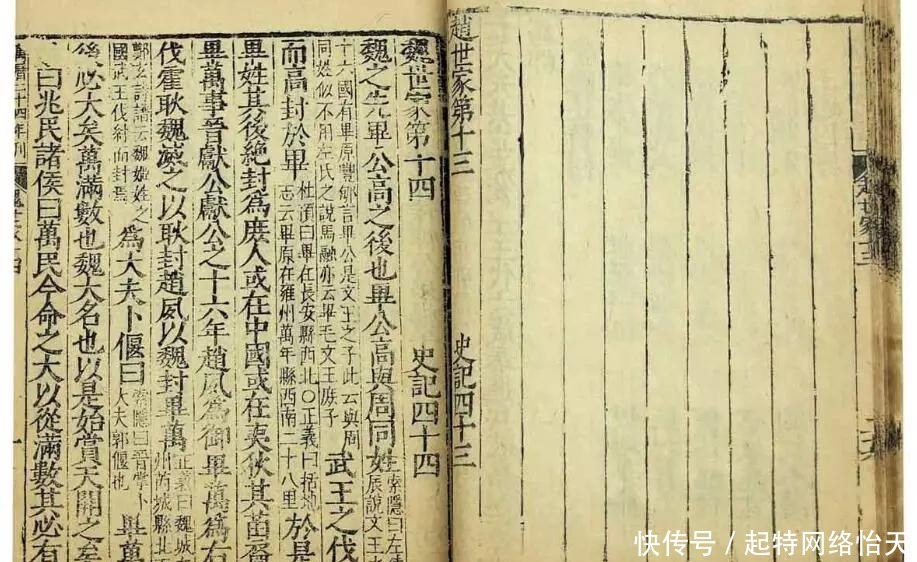 趙世家第十三 史記四十三
魏世家第十四 史記四十四
魏之先畢公高之後也畢公高與周同姓
索隱曰左
辰說文王
十六國有畢原豐郇言畢公是文王之子此云與周
同姓似不用左氏之說馬融亦云畢毛文王庶子
武王之伐
而高封於畢
杜預曰畢在長安縣西北〇正義曰括地
志云畢原在雍州萬年縣西南二十八里
於是
畢姓其後絕封為庶人或在中國或在夷狄其苗裔
畢萬事晉獻公獻公之十六年趙夙為御畢萬為右
伐霍耿魏滅之以耿封趙夙以魏封畢萬
正義曰魏城
州芮城縣北
鄭玄詩譜云魏姬姓之
國武王伐紂而封焉
為大夫卜偃曰
索隱曰晉掌卜
大夫郭偃也
畢萬
後必大矣萬滿數也魏大名也以是始賞天開之矣
曰兆民諸侯曰萬民今命之大以從滿數其必有
二十四年刊
快传号/起特网络怡天